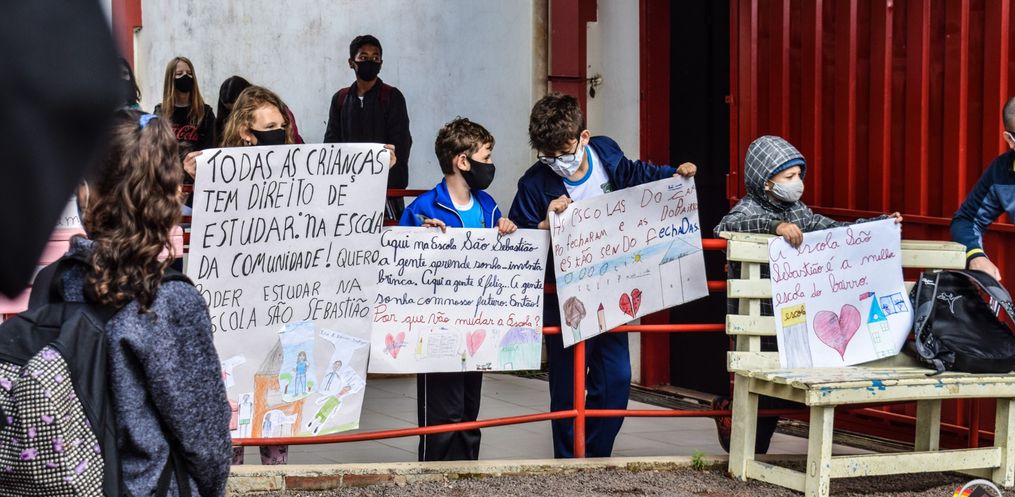 TODAS AS CRIANÇAS
TEM DIREITO DE
ESTUDAR: NA ESCOLA
DA COMUNIDADE! QUERO
PODER ESTUDAR NA
ESCOLA SÃO SEBASTIÃO
Aqui na Escola São Sebastião
a gente aprende, sonha, inventa
brinca. Aqui a gente é feliz,
sonha com nosso futuro. Então!
Por que não mudar a Escola?
AS ESCOLAS DO
fecharam e AS DO BAIRRO
estão sendo fechadas
A escola São
Sebastião é a melhor
escola do bairro
Coca